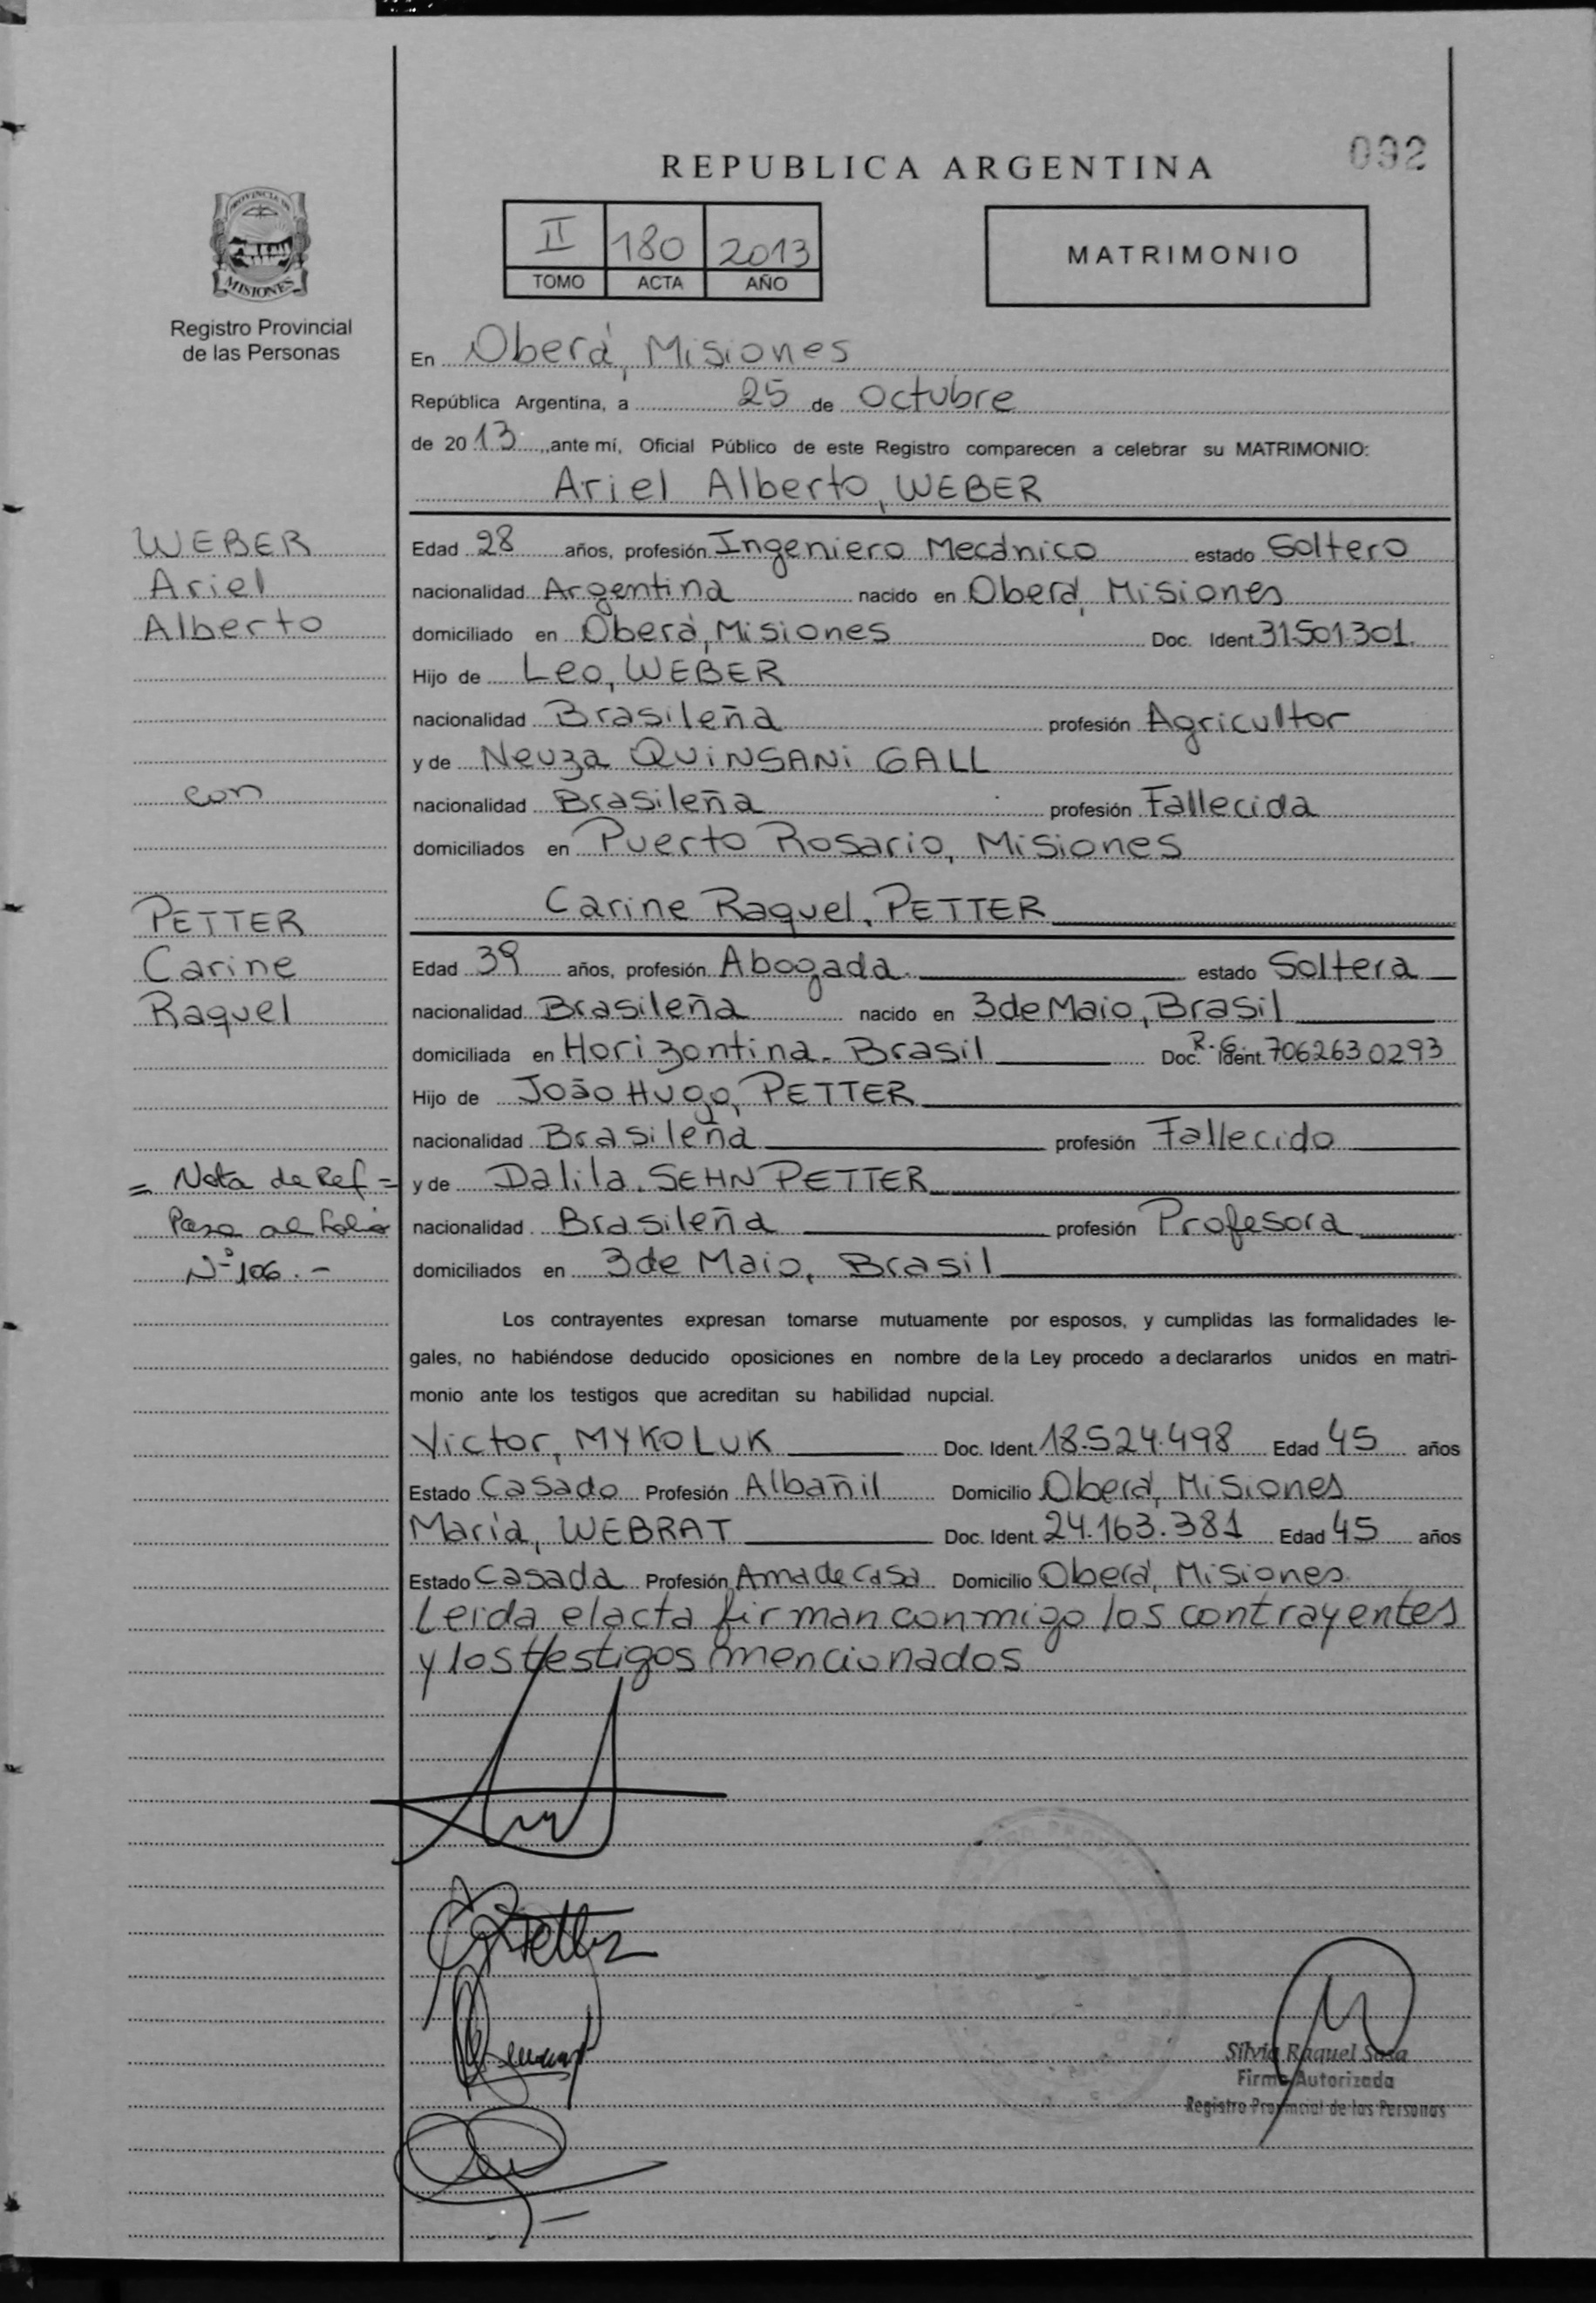 092
REPUBLICA ARGENTINA
PROVINCIA DE
MISIONES
Registro Provincial
de las Personas
II 180 2013
TOMO ACTA AÑO
MATRIMONIO
En Oberá, Misiones
República Argentina, a 25 de Octubre
de 2013, ante mí, Oficial Público de este Registro comparecen a celebrar su MATRIMONIO:
Ariel Alberto, WEBER
WEBER
Ariel
Alberto
con
PETTER
Carine
Raquel
= Nota de Ref =
Pasa al folio
Nº 106.-
Edad 28 años, profesión Ingeniero Mecánico estado Soltero
nacionalidad Argentina nacido en Oberá, Misiones
domiciliado en Oberá, Misiones Doc. Ident. 31.501.301.
Hijo de Leo, WEBER
nacionalidad Brasileña profesión Agricultor
y de Neuza QUINSANI GALL
nacionalidad Brasileña profesión Fallecida
domiciliados en Puerto Rosario, Misiones
Carine Raquel, PETTER
Edad 39 años, profesión Abogada. estado Soltera
nacionalidad Brasileña nacido en 3 de Maio, Brasil
domiciliada en Horizontina. Brasil Doc. Ident. R.G. 7062630293
Hijo de João Hugo, PETTER
nacionalidad Brasileña profesión Fallecido
y de Dalila. SEHN PETTER
nacionalidad Brasileña profesión Profesora
domiciliados en 3 de Maio, Brasil
Los contrayentes expresan tomarse mutuamente por esposos, y cumplidas las formalidades le-
gales, no habiéndose deducido oposiciones en nombre de la Ley procedo a declararlos unidos en matri-
monio ante los testigos que acreditan su habilidad nupcial.
Victor, MYKOLUK Doc. Ident. 18.524.498 Edad 45 años
Estado Casado Profesión Albañil Domicilio Oberá, Misiones
María, WEBRAT Doc. Ident. 24.163.381 Edad 45 años
Estado Casada Profesión Ama de Casa Domicilio Oberá, Misiones
Leida el acta firman conmigo los contrayentes
y los testigos mencionados
Silvia Raquel Sosa
Firma Autorizada
Registro Provincial de las Personas